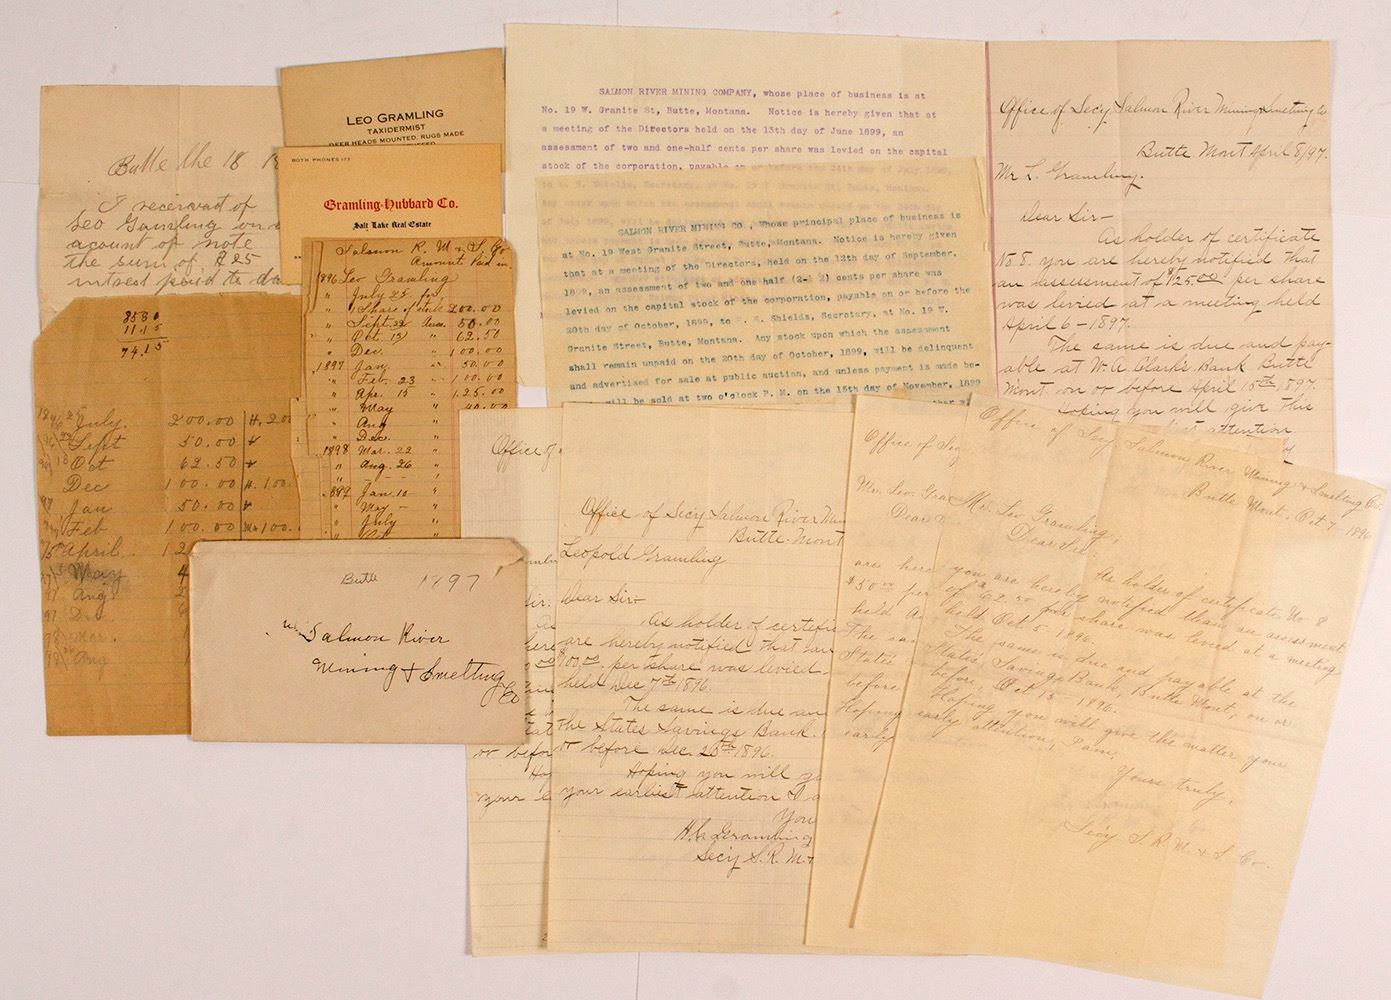 Butte the 18
I receravd of
Leo Gramling on
acount of note
the sum of $25
intrest paid to
LEO GRAMLING
TAXIDERMIST
DEER HEADS MOUNTED, RUGS MADE
BOTH PHONES 173
Gramling-Hubbard Co.
Salt Lake Real Estate
Salmon R. M & S. Co
Amounts Paid in
1896 Leo Gramling
" July 25 for
" 1 Share of stock 200.00
" Sept 22 50.00
" Oct. 13 " 62.50
" Dec. " 100.00
1897 Jan. " 50.00
" Feb. 23 " 100.00
" Apr. 15 " 125.00
" May
" Aug
" Dec.
1898 Mar. 22 "
" Aug. 26 "
1899 Jan 10 "
" May "
" July "
8530
1115
7415
July. 200.00 H. 20
Sept 50.00
Oct 62.50
Dec 100.00 H. 100.
Jan 50.00
Feb 100.00 100.
April. 12
May 4
Aug
Dec.
Mar.
Aug
Butte 1897
Salmon River
Mining & Smelting
Co
SALMON RIVER MINING COMPANY, whose place of business is at
No. 19 W. Granite St, Butte, Montana. Notice is hereby given that at
a meeting of the Directors held on the 13th day of June 1899, an
assessment of two and one-half cents per share was levied on the capital
stock of the corporation, payable on or before the 24th day of July 1899,
SALMON RIVER MINING CO., Whose principal place of business is
at No. 19 West Granite Street, Butte, Montana. Notice is hereby given
that at a meeting of the Directors, held on the 12th day of September,
1899, an assessment of two and one half (2-1 2) cents per share was
levied on the capital stock of the corporation, payable on or before the
20th day of October, 1899, to P. E. Shields, Secretary, at No. 19 W.
Granite Street, Butte, Montana. Any stock upon which the assessment
shall remain unpaid on the 20th day of October, 1899, will be delinquent
and advertised for sale at public auction, and unless payment is made be-
will be sold at two o'clock P. M. on the 15th day of November, 1899
Office of Secy, Salmon River Mining & Smelting Co
Butte Mont April 8/97.
Mr L. Gramling.
Dear Sir-
As holder of certificate
No 8. you are hereby notified that
an assessment of $125.00 per share
was levied at a meeting held
April 6-1897.
The same is due and pay-
able at W. A. Clark's Bank Butte
Mont on or before April 15th 1897.
Hoping you will give this
attention
Office of
or befor
Ho
your e
Office of Secy Salmon River Min
Butte-Mont
Leopold Gramling
Dear Sir-
As holder of certifi
are hereby notified that an
$100.00 per share was levied
held Dec 7th 1896.
The same is due an
the States Savings Bank.
or before Dec. 20th 1896.
Hoping you will g
your earliest attention I a
You
H. C. Gramling
Sec'y S. R. M. &
Office of Secy
Mr. Leo. Gra
Dear
are here
$50.00 per
held
The sa
States
before
Hoping
early
Office of Secy Salmon River Mining & Smelting Co.
Butte Mont. Oct 7, 1896
Mr. Leo Gramling;
Dear Sir:
As holder of certificate No 8
you are hereby notified that an assessment
of $62.50 per share was levied at a meeting
held Oct 5 1896.
The same is due and payable at the
States Savings Bank, Butte Mont, on or
before Oct 15- 1896.
Hoping you will give the matter your
early attention, I am,
Yours truly,
Sec'y S. R. M. & S. Co.